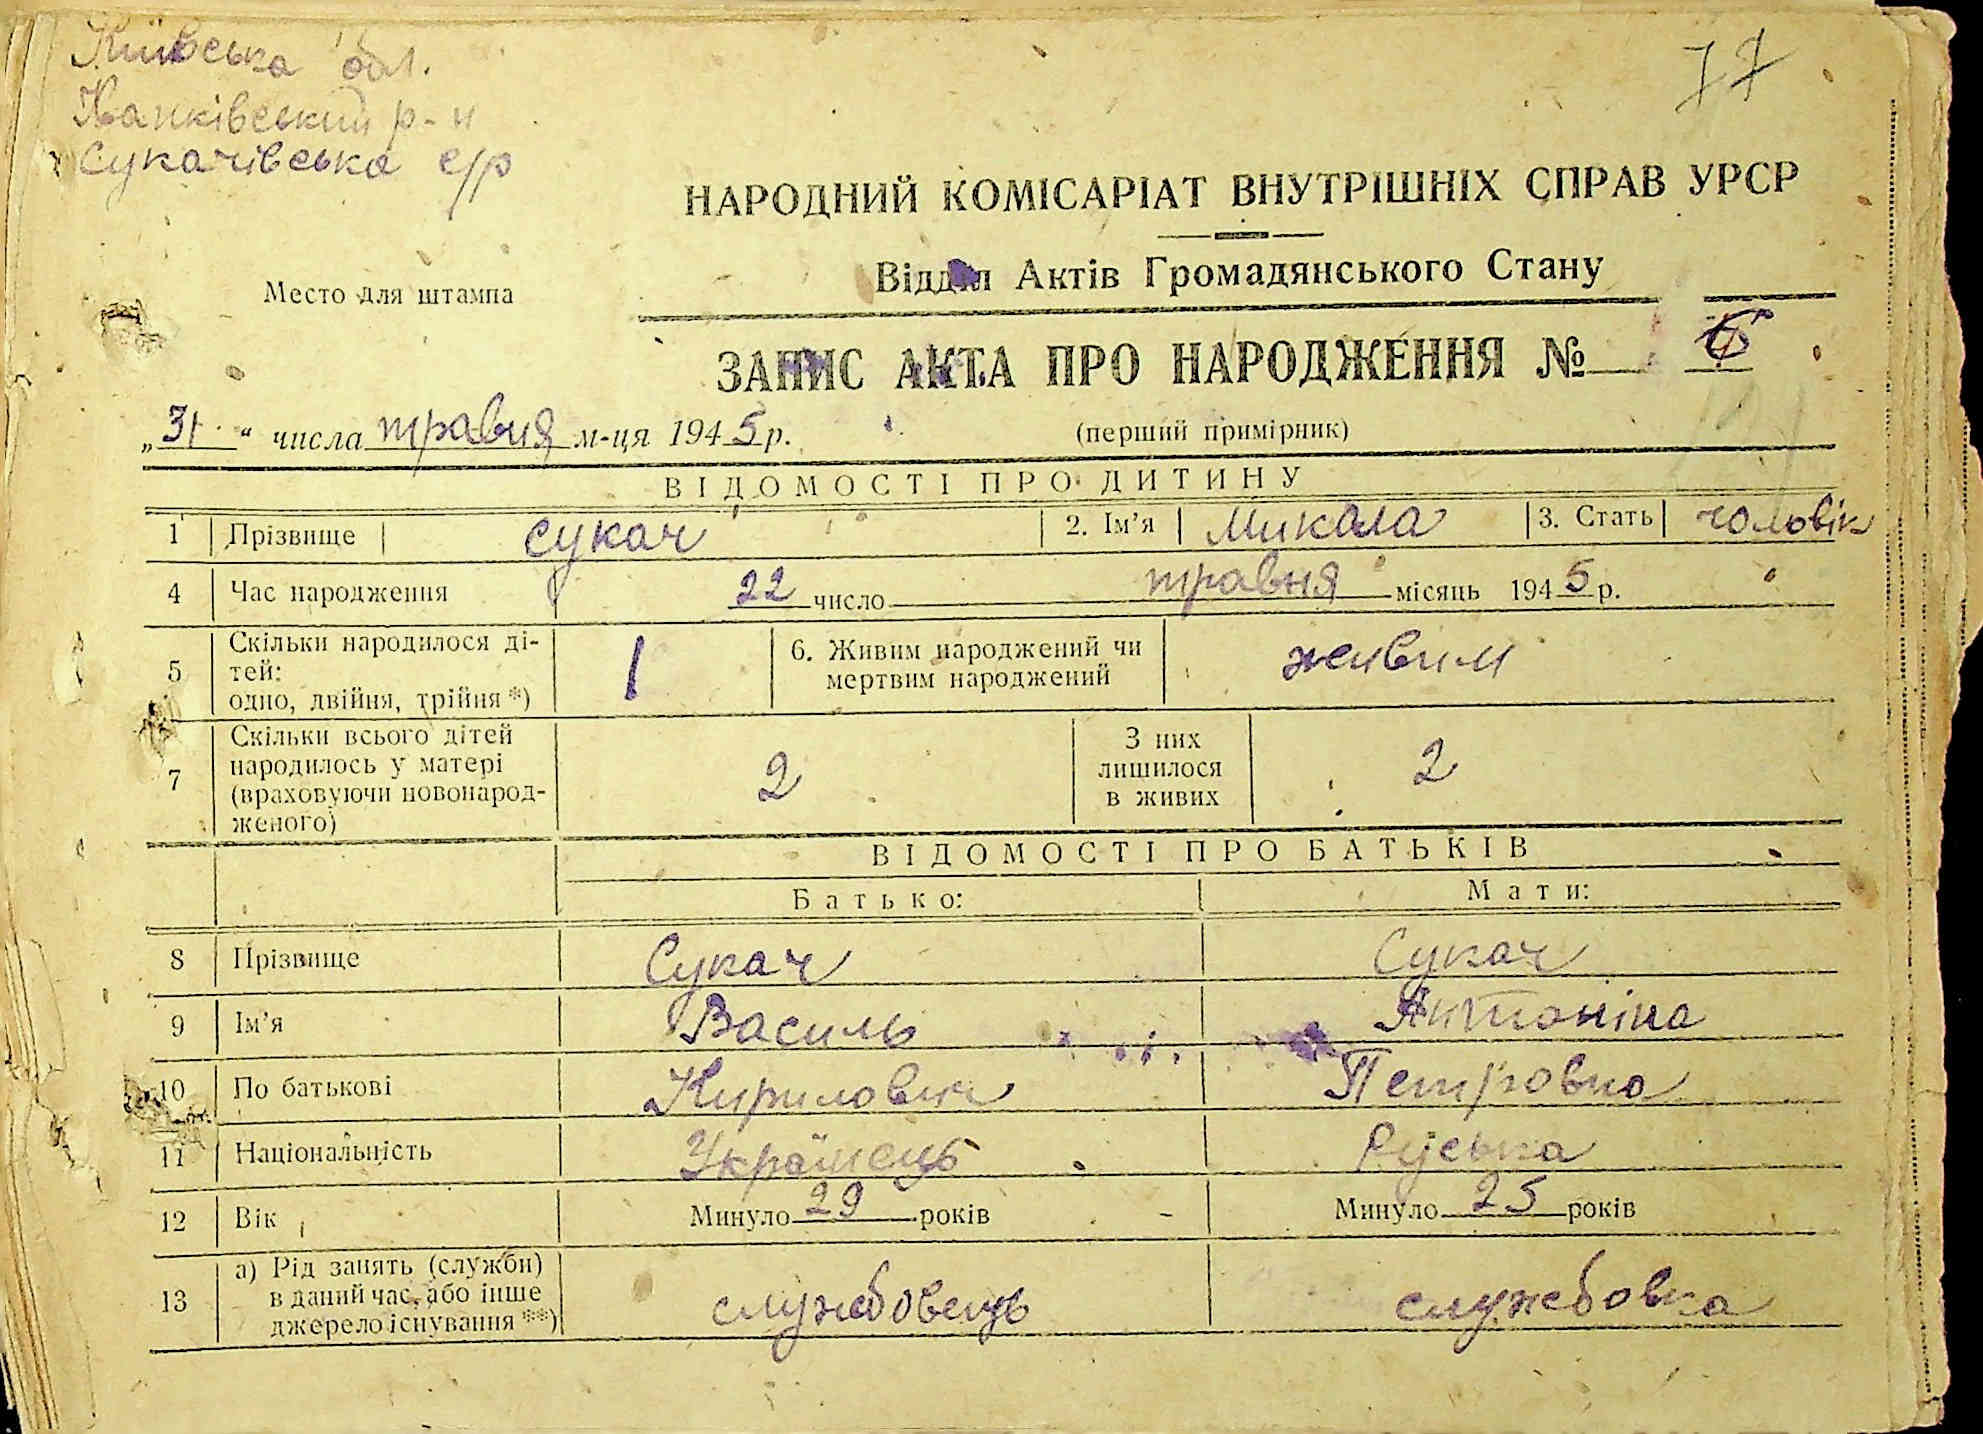 77
Київська обл.
Іванківський р-н
Сукачівська с/р
НАРОДНИЙ КОМІСАРІАТ ВНУТРІШНІХ СПРАВ УРСР
Відділ Актів Громадянського Стану
Место для штампа
ЗАПИС АКТА ПРО НАРОДЖЕННЯ № 6
„31“ числа травня м-ця 1945 р.
(перший примірник)
ВІДОМОСТІ ПРО ДИТИНУ
1 Прізвище Сукач 2. Ім’я Микола 3. Стать чоловік
4 Час народження 22 число травня місяць 1945 р.
5 Скільки народилося ді-
тей:
одно, двійня, трійня *) 1
6. Живим народжений чи
мертвим народжений живим
7 Скільки всього дітей
народилось у матері
(враховуючи новонарод-
женого) 2
З них
лишилося
в живих 2
ВІДОМОСТІ ПРО БАТЬКІВ
Батько: Мати:
8 Прізвище Сукач Сукач
9 Ім’я Василь Антоніна
10 По батькові Кирилович Петровна
11 Національність Українець Руська
12 Вік Минуло 29 років Минуло 25 років
13 а) Рід занять (служби)
в даний час, або інше
джерело існування **) службовець службовка